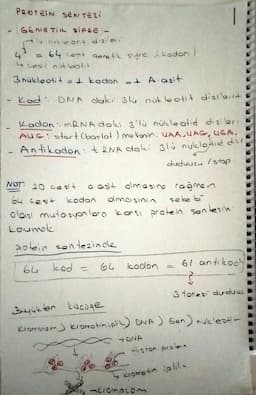 PROTEİN SENTEZİ
- GENETİK ŞİFRE -
3'lü nükleotit dizilimi
4³ = 64 çeşit genetik şifre (kodon)
4 çeşit nükleotit
3 nükleotit = 1 kodon = 1 A-asit
- Kod: DNA daki 3lü nükleotit dizilimi
- Kodon: mRNA daki 3'lü nükleotid dizilimi
AUG: start (başlat) metiyonin. UAA, UAG, UGA.
- Antikodon: tRNA daki 3lü nükleotid dizi
durdurucu / stop
NOT: 20 çeşit a.asit olmasına rağmen
64 çeşit kodon olmasının sebebi
olası mutasyonları karşı protein sentezini
korumak
protein sentezinde
64 kod = 64 kodon = 61 antikodon
3 tanesi durdurucu
Büyükten küçüğe
Kromozom) Kromatin iplik) DNA) Gen) nükleotit
→DNA
Histon protein
kromatin iplik
→Kromozom